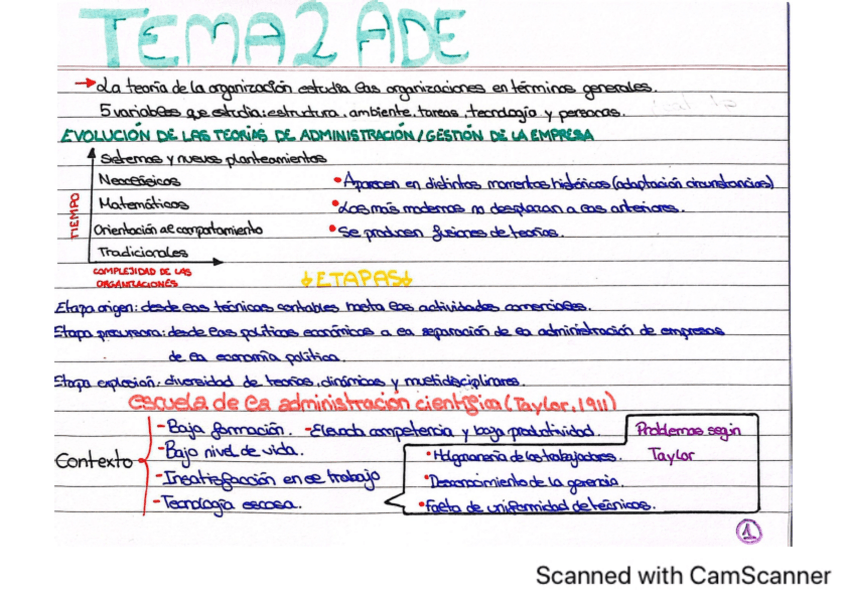 TEMA 2 ADE
→ La teoría de la organización estudia las organizaciones en términos generales.
5 variables que estudia: estructura, ambiente, tareas, tecnología y personas.
EVOLUCIÓN DE LAS TEORÍAS DE ADMINISTRACIÓN/GESTIÓN DE LA EMPRESA
Sistemas y nuevos planteamientos
Neoclásicos
• Aparecen en distintos momentos históricos (adaptación circunstancias)
Matemáticos
• Las más modernas no desplazan a las anteriores.
Orientación al comportamiento
• Se producen fusiones de teorías.
Tradicionales
TIEMPO
COMPLEJIDAD DE LAS
ORGANIZACIONES
↓ETAPAS↓
Etapa origen: desde las técnicas contables hasta las actividades comerciales.
Etapa precursora: desde las políticas económicas a la separación de la administración de empresas
de la economía política.
Etapa explosión: diversidad de teorías, dinámicas y multidisciplinares.
escuela de la administración científica (Taylor, 1911)
Contexto
- Baja formación. - Elevada competencia y baja productividad.
- Bajo nivel de vida.
- Insatisfacción en el trabajo
- Tecnología escasa.
Problemas según
Taylor
• Holgazanería de los trabajadores.
• Desconocimiento de la gerencia.
• Falta de uniformidad de técnicas.
1
Scanned with CamScanner